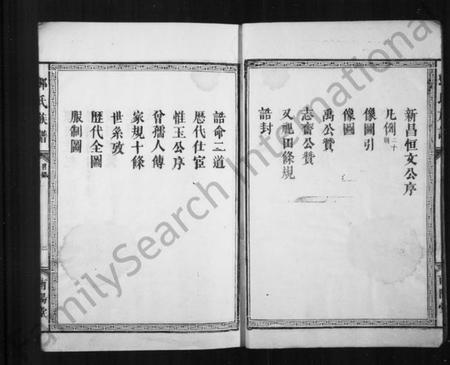 新昌恒文公序
凡例二十則
像圖引
像圖
禹公贊
志齋公贊
又祀田條規
誥封
誥命二道
歷代仕宦
惟玉公序
曾孺人傳
家規十條
世系攷
歷代全圖
服制圖
鄧氏族譜
南陽堂
FamilySearch International